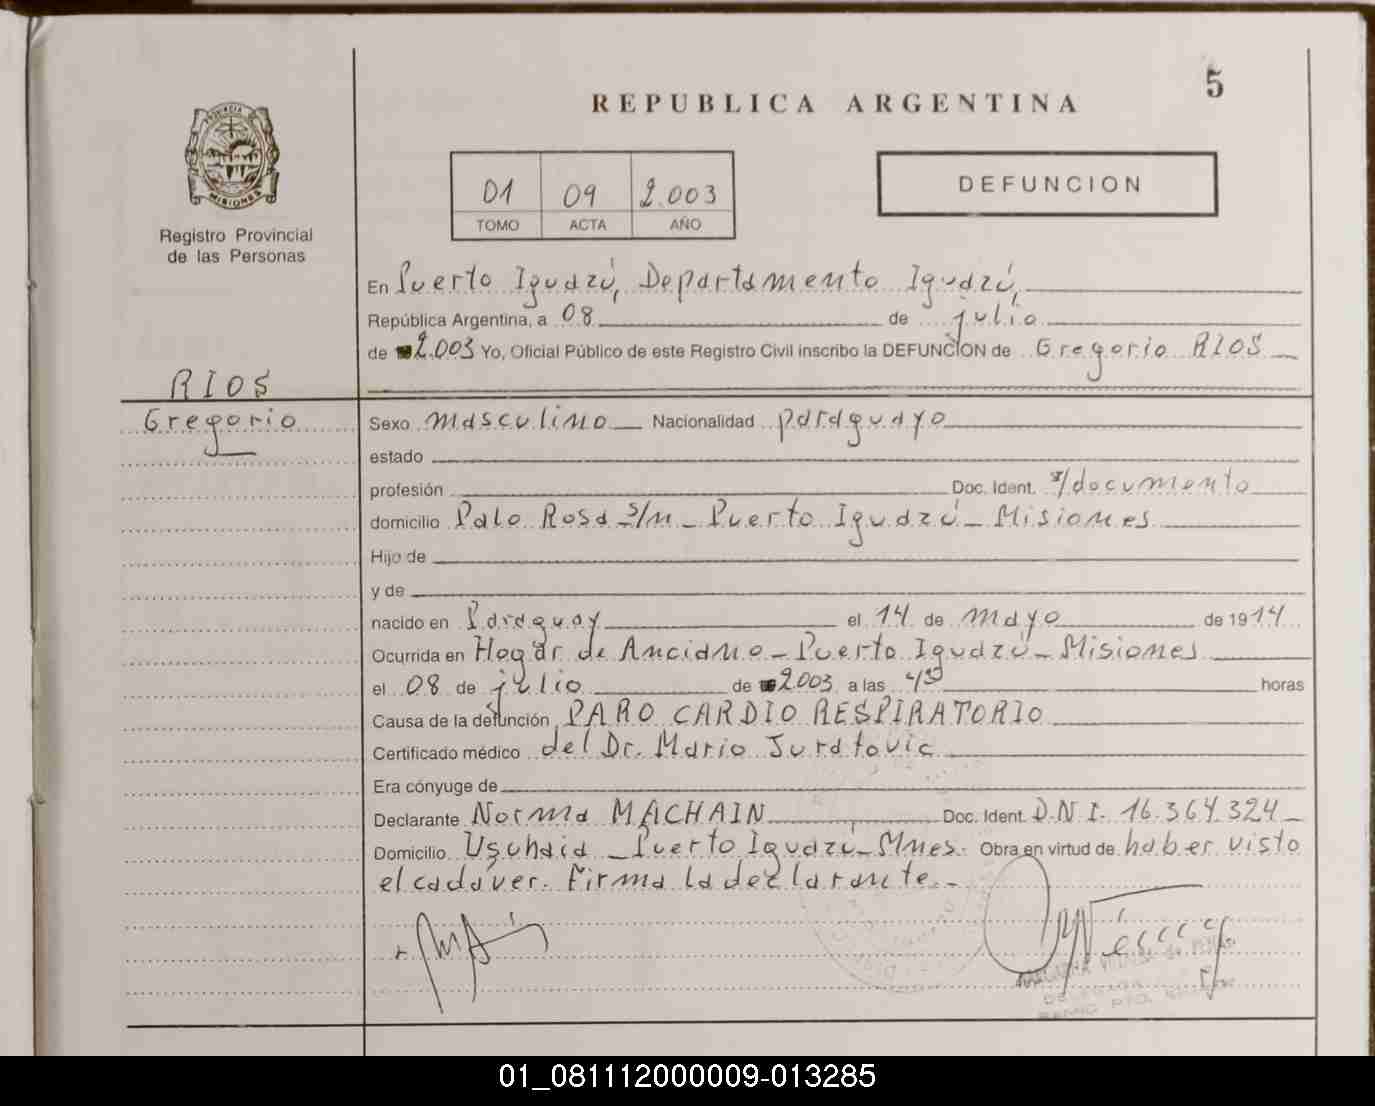 5
REPUBLICA ARGENTINA
PROVINCIA DE
MISIONES
Registro Provincial
de las Personas
01 09 2.003
TOMO ACTA AÑO
DEFUNCION
En Puerto Iguazú, Departamento Iguazú,
República Argentina, a 08 de julio
de 2.003 Yo, Oficial Público de este Registro Civil inscribo la DEFUNCION de Gregorio RIOS
RIOS
Gregorio
Sexo masculino Nacionalidad paraguayo
estado
profesión Doc. Ident. s/documento
domicilio Palo Rosa s/n - Puerto Iguazú - Misiones
Hijo de
y de
nacido en Paraguay el 14 de mayo de 1914
Ocurrida en Hogar de Anciano - Puerto Iguazú - Misiones
el 08 de julio de 2003 a las horas
Causa de la defunción PARO CARDIO RESPIRATORIO
Certificado médico del Dr. Mario Juratovic
Era cónyuge de
Declarante Norma MACHAIN Doc. Ident. D.N.I. 16.364.324
Domicilio Usuhaia - Puerto Iguazú - Mnes. Obra en virtud de haber visto
el cadáver. Firma la declarante.-
01_081112000009-013285